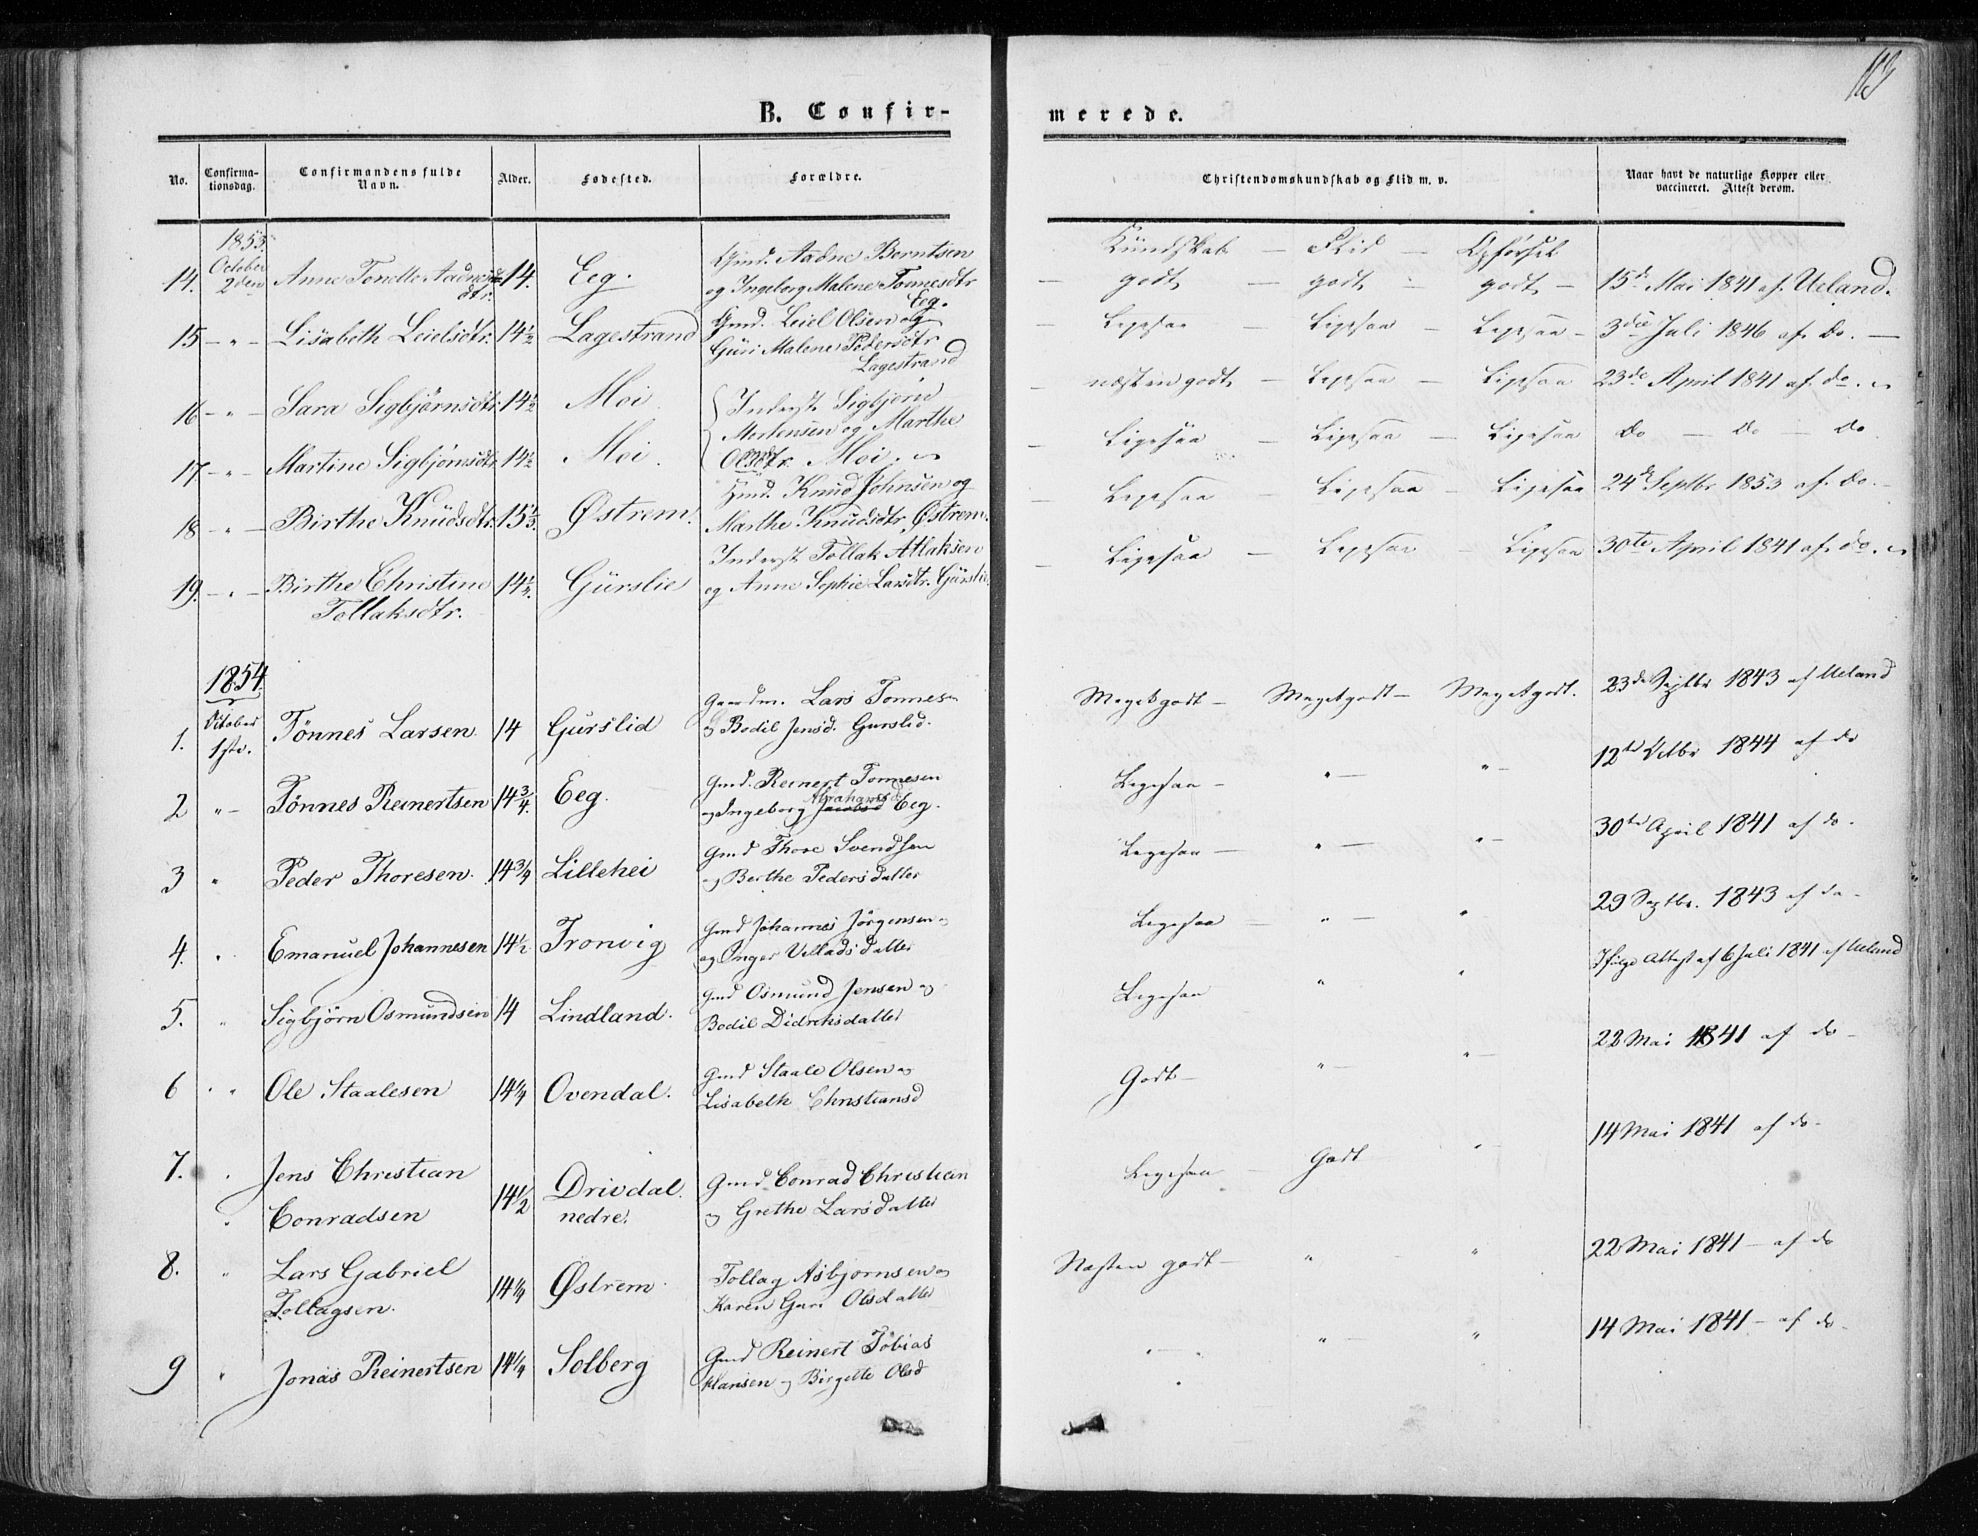 B. Confir-
merede.
No. Confirma-tionsdag. Confirmandens fulde Navn. Alder. Fødested. Forældre. Christendomskundskab og Flid m. v. Naar havt de naturlige Kopper eller vaccineret. Attest derom.
1853. Kundskab — Flid — Opførsel
October Gmd. Aadne Berntsen
14. 2den Anne Tonette Aadnesdtr. 14. Eeg. og Ingeborg Malene Tonnesdtr Eeg. — godt — godt — godt — 15de Mai 1841 af Ueland.
15 — " — Lisabeth Leielsdtr. 14½ Lagestrand Gmd. Leiel Olsen og
Guri Malene Pedersdtr Lagestrand — Ligesaa — Ligesaa — Ligesaa — 3die Juli 1846 af do. —
16 — " — Sara Sigbjørnsdtr. 14½ Moi Inderst Sigbjørn — næsten godt — Ligesaa — Ligesaa 23de April 1841 af do.
Mortensen og Marthe
17 — " — Martine Sigbjørnsdtr 14½ Moi. Olsdtr. Moi. — Ligesaa — Ligesaa — Ligesaa do — do — do
18 — " — Birthe Knudsdtr. 15⅓. Østrem. Gmd. Knud Johnsen og
Marthe Knudsdtr. Østrem. — Ligesaa — Ligesaa — Ligesaa 24de Septbr 1853 af do. —
Inderst Tollak Atlaksen
19. — " — Birthe Christine Tollaksdtr. 14¼. Gurslie og Anne Sophie Larsdtr. Gurslie. — Ligesaa — Ligesaa — Ligesaa 30te April 1841 af do.
1854.
October Gaardm. Lars Tonnesen
1. 1ste. Tønnes Larsen. 14 Gurslid og Bodil Jensd. Gurslid. Meget godt — Meget godt — Meget godt. 23de Septbr 1843 af Ueland
2 " — Tönnes Reinertsen 14¾. Eeg. Gmd. Reinert Tonnesen
og Ingeborg Jacobsd Abrahamsd Eeg. Ligesaa — " — " — 12te Octbr 1844 af do
3 " Peder Thoresen. 14¾ Lillehei Gmd Thore Svendsen
og Berthe Pedersdatter Ligesaa — " — " — 30te April 1841 af do.
4. " Emanuel Johannesen 14½ Tronvig Gmd Johannes Jörgensen
og Inger Velladsdatter Ligesaa — " — " 29 Septbr. 1843 af do —
5. " Sigbjörn Osmundsen 14 Lindland. Gmd Osmund Jensen og
Bodil Didriksdatter Ligesaa " " Ifølge Attest af 6 Juli 1841 af Ueland
6 " " Ole Staalesen 14¼ Ovendal. Gmd Staale Olsen og
Lisabeth Christiansd Godt — " — " — 22 Mai 1841 af do —
7. " Jens Christian
" Conradsen 14½ Drivdal nedre. Gmd Conrad Christian
og Grethe Larsdatter Ligesaa — Godt " — 14 Mai 1841 af do —
8. " Lars Gabriel
Tollagsen. 14¼ Østrem. Tollag Asbjornsen og
Karen Guri Olsdatter Næsten godt — " " 22 Mai 1841 — af do
9 " Jonas Reinertsen 14¼ Solberg Gmd Reinert Tobias
Hansen og Birgette Olsd " — " — " 14 Mai 1841 — af do —